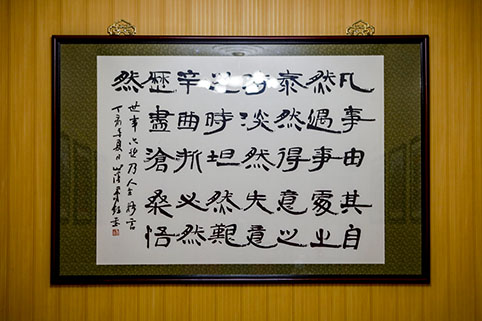 凡事由其自
然遇事處之
泰然得意之
時淡然失意
之時坦然艱
辛曲折必然
歷盡滄桑悟
然
世事六然乃人生格言
丁亥年夏日